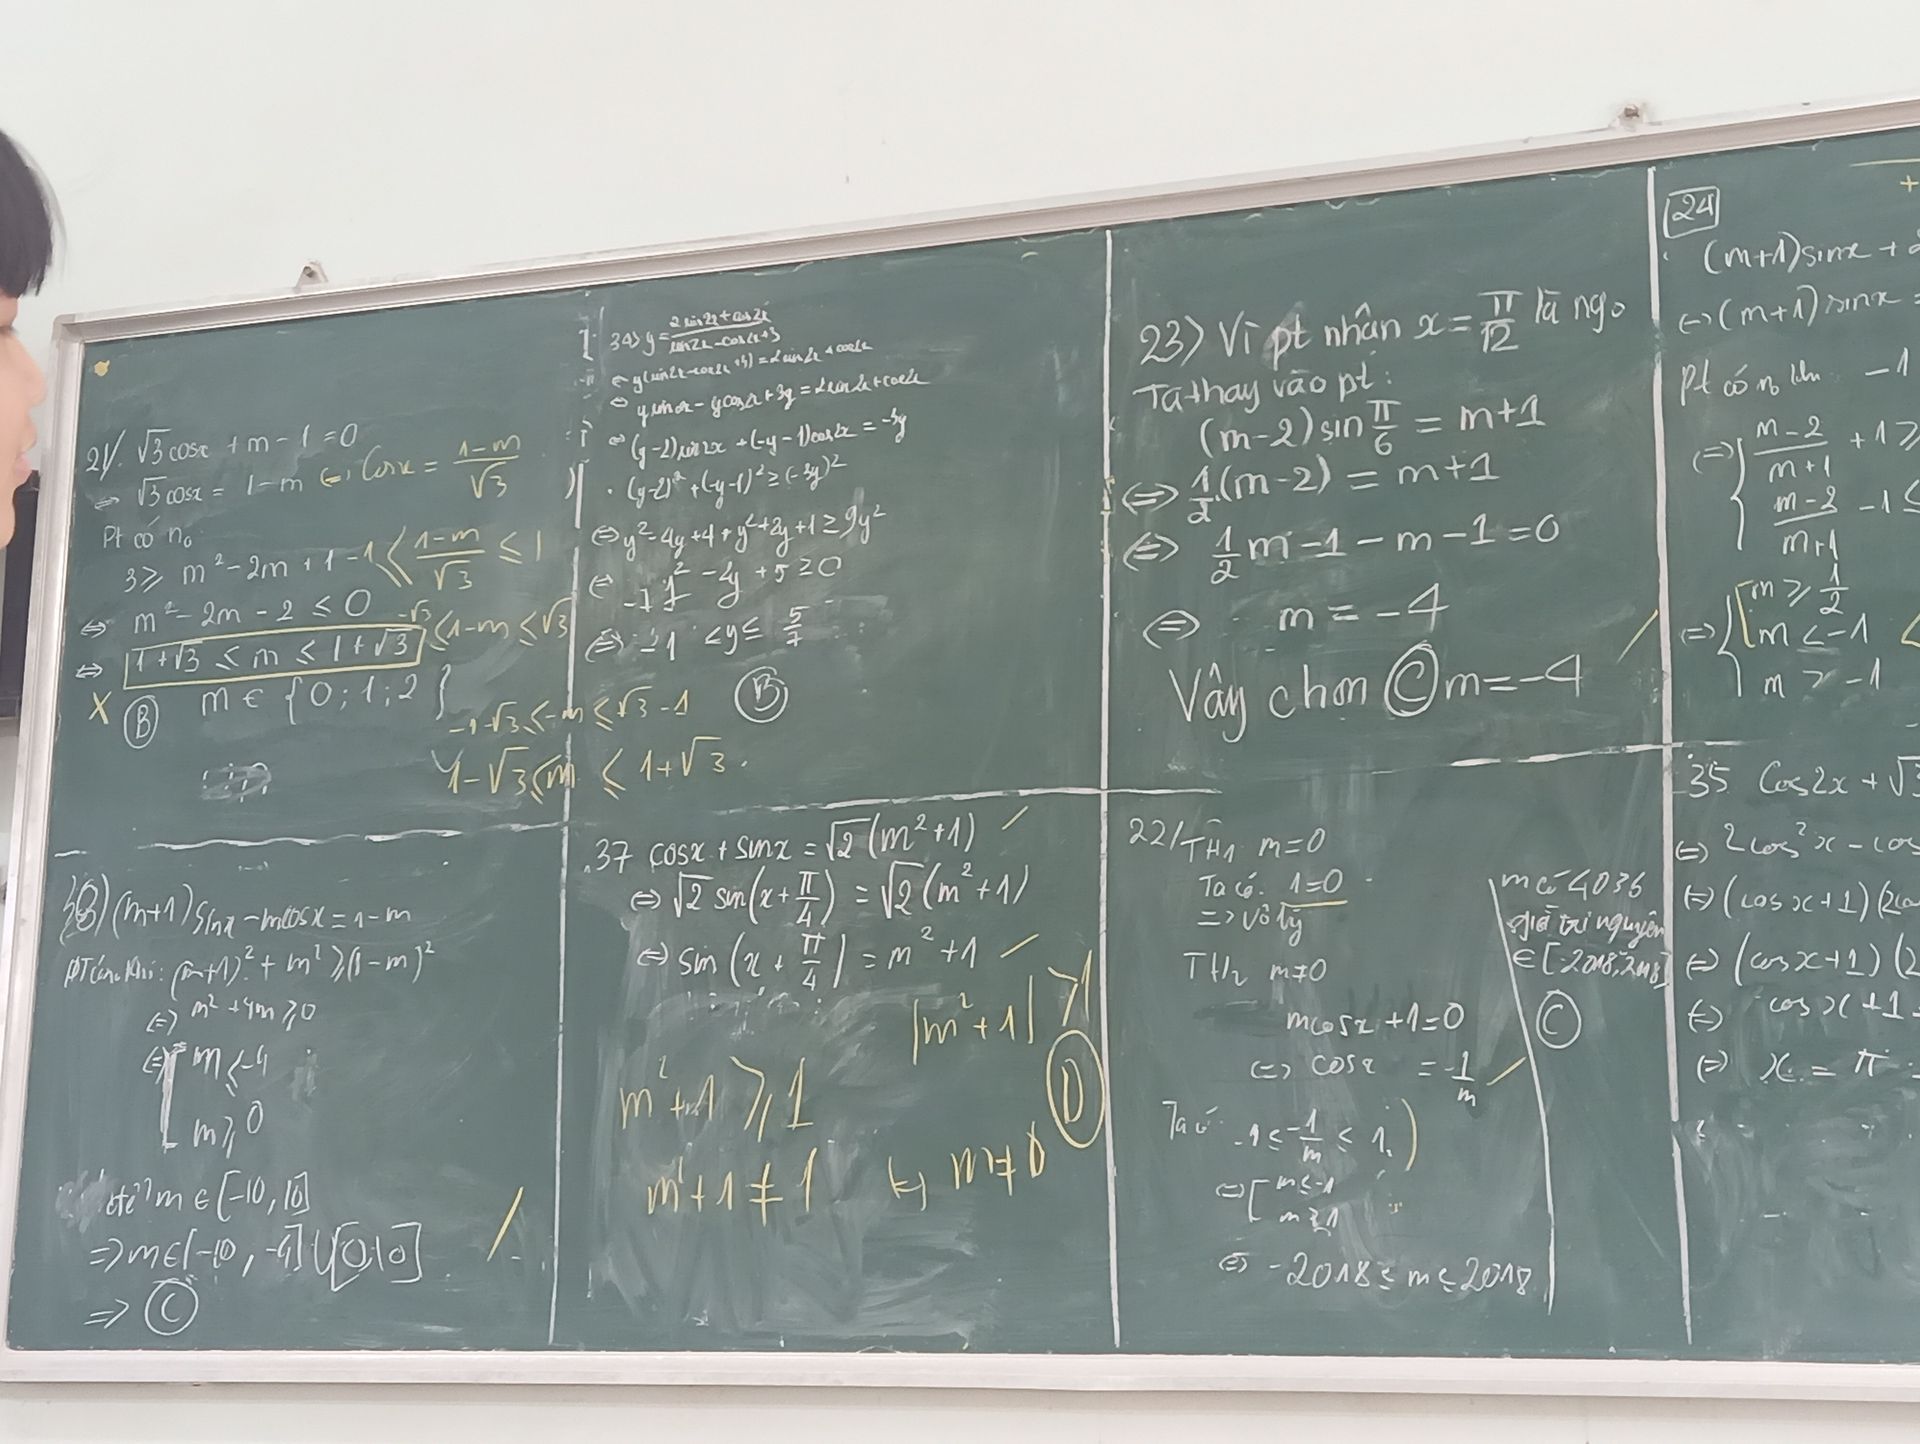 21/. √3 cosx + m - 1 = 0
⇔ √3 cosx = 1 - m ⇔ Cosx = (1-m)/√3
Pt có no
3 ≥ m² - 2m + 1 -1 ≤ (1-m)/√3 ≤ 1
⇔ m² - 2m - 2 ≤ 0 -√3 ≤ 1-m ≤ √3
⇔ 1+√3 ≤ m ≤ 1+√3
X Ⓑ m ∈ {0; 1; 2}
-1-√3 ≤ -m ≤ √3 - 1
1-√3 ≤ m ≤ 1+√3.
34) y = (2sin2x + cos2x)/(sin2x - cos2x + 3)
⇔ y(sin2x - cos2x + 3) = 2sin2x + cos2x
⇔ ysin2x - ycos2x + 3y = 2sin2x + cos2x
⇔ (y-2)sin2x + (-y-1)cos2x = -3y
(y-2)² + (-y-1)² ≥ (-3y)²
⇔ y² - 4y + 4 + y² + 2y + 1 ≥ 9y²
⇔ -7y² - 2y + 5 ≥ 0
⇔ -1 ≤ y ≤ 5/7
Ⓑ
23) Vì pt nhận x = π/12 là ngo
Ta thay vào pt:
(m-2)sin π/6 = m+1
⇔ 1/2.(m-2) = m+1
⇔ 1/2 m - 1 - m - 1 = 0
⇔ m = -4
Vậy chọn Ⓒ m = -4
24
(m+1)sinx + 2
⇔ (m+1)sinx =
Pt có no khi -1
⇔ { (m-2)/(m+1) + 1 ≥
(m-2)/(m+1) - 1 ≤
⇔ { [ m ≥ 1/2
m < -1
m > -1
(m+1)sinx - mcosx = 1 - m
(m+1)² + m² ≥ (1-m)²
⇔ m² + 4m ≥ 0
⇔ [ m ≤ -4
m ≥ 0
m ∈ [-10, 10]
⇒ m ∈ [-10, -4] ∪ [0;10]
⇒ Ⓒ
37 cosx + sinx = √2(m²+1)
⇔ √2 sin(x + π/4) = √2(m²+1)
⇔ sin(x + π/4) = m² + 1
|m²+1| > 1
m² + 1 ≥ 1
m² + 1 ≠ 1 ⇔ m ≠ 0
Ⓓ
22/ TH1 m = 0
Ta có. 1 = 0
⇒ vô lý
TH2 m ≠ 0
mcosx + 1 = 0
⇔ cosx = -1/m
Ta có -1 ≤ -1/m ≤ 1.
⇔ [ m ≤ -1
m ≥ 1
⇔ -2018 ≤ m ≤ 2018
m có 4036
giá trị nguyên
∈ [-2018, 2018]
Ⓒ
35 Cos2x + √3
⇔ 2cos²x - cos
⇔ (cosx + 1)(2co
⇔ (cosx + 1)(2
⇔ cosx + 1
⇔ x = π